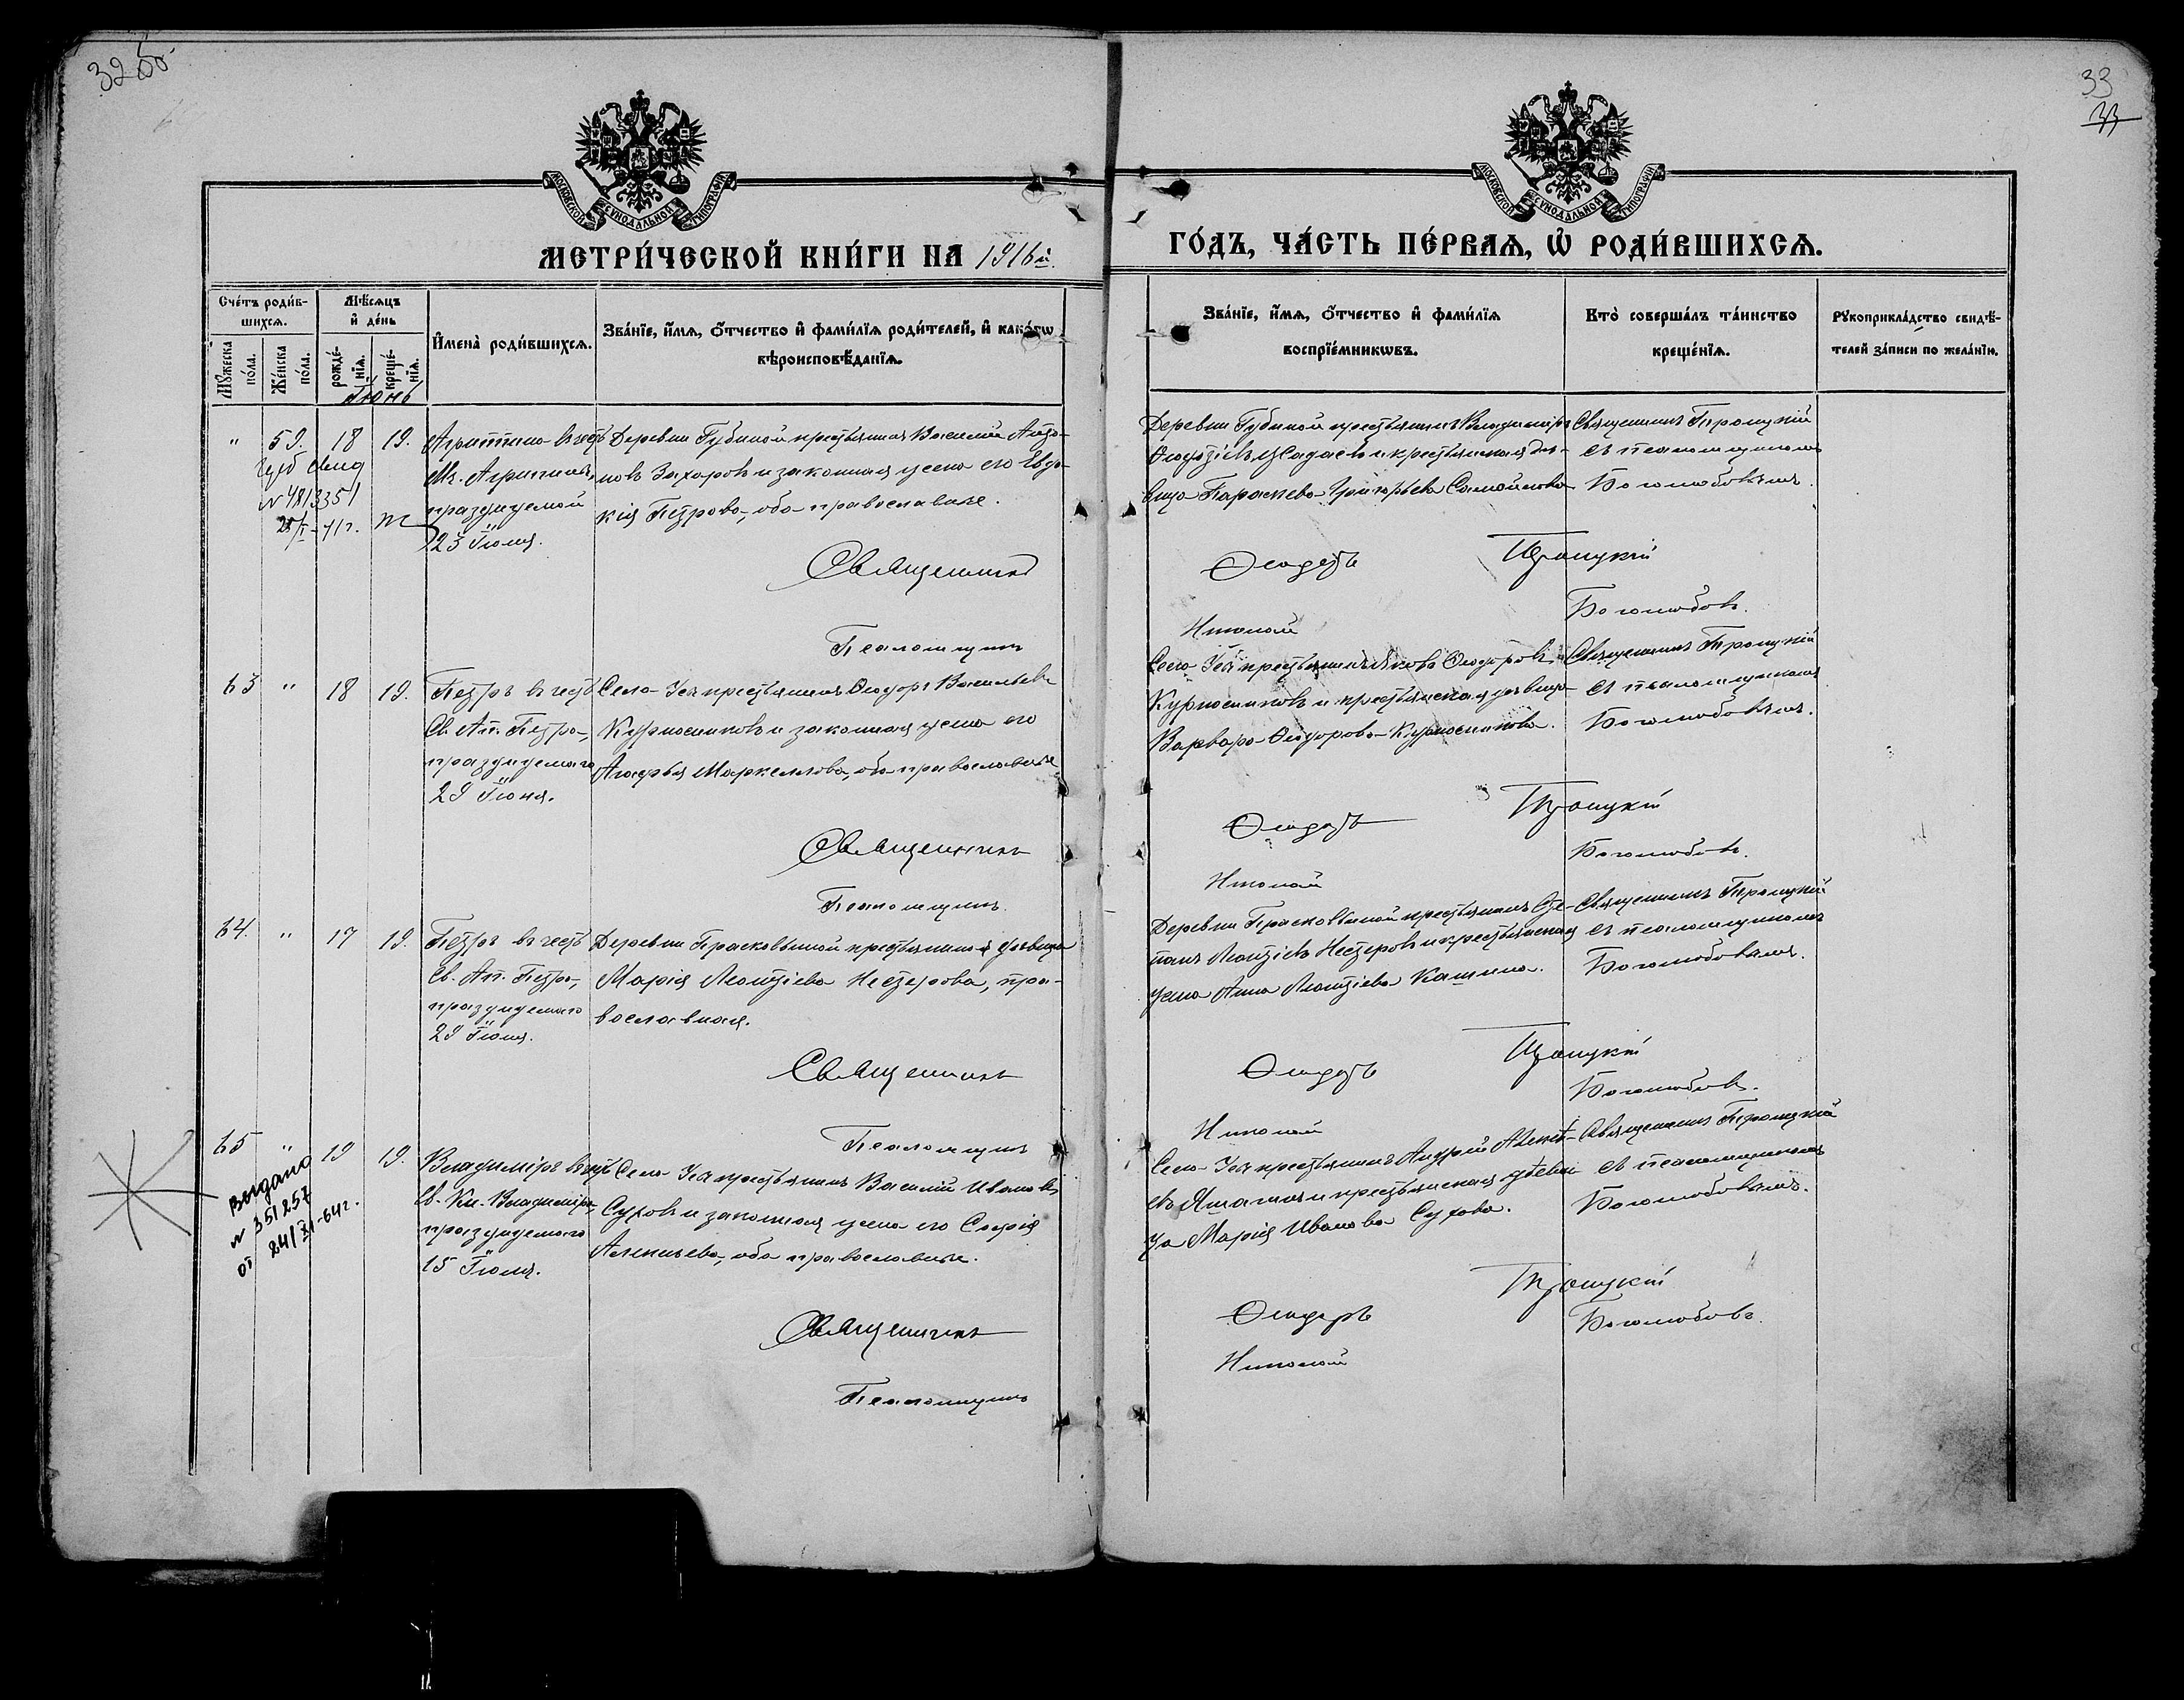 32 об
33
33
МОСКОВСКОЙ СѴНОДАЛЬНОЙ ТИПОГРАФІИ
МОСКОВСКОЙ СѴНОДАЛЬНОЙ ТИПОГРАФІИ
МЕТРИ́ЧЕСКОЙ КНИ́ГИ НА 1916й.
ГО́ДЪ, ЧА́СТЬ ПЕ́РВАЯ, Ѡ҆ РОДИ́ВШИХСЯ.
Сче́тъ роди́в-
шихся.
Мꙋ́жеска по́ла.
Же́нска по́ла.
Мѣ́сяцъ
и҆ де́нь
рожде́-
нїя.
креще́-
нїя.
И҆мена̀ роди́вшихся.
Зва́нїе, и҆́мя, ѻ҆́тчество и҆ фами́лїя роди́телей, и҆ како́гѡ
вѣроисповѣ́данїя.
Зва́нїе, и҆́мя, ѻ҆́тчество и҆ фами́лїя
воспрїе́мникѡвъ.
Кто̀ соверша́лъ та́инство
креще́нїя.
Рꙋкоприкла́дство свидѣ́-
телей за́писи по жела́нїю.
Іюнь
" 59. 18 19.
№ 4813351
Агриппина въ честь
Мч. Агриппины,
празднуемой
23 Іюня.
Деревни Губиной крестьянинъ Василій Анто-
новъ Захаровъ и законная жена его Евдо-
кія Петрова, оба православные.
Священникъ
Псаломщикъ
Деревни Губиной крестьянинъ Владиміръ
Григорьева Самойлова
Священникъ Троицкій
съ псаломщикомъ
Боголюбовымъ.
Троицкій
Боголюбовъ.
Николай
63 " 18 19.
Петръ въ честь
Св. Ап. Петра,
празднуемаго
29 Іюня.
Села Усъ крестьянинъ Ѳеодоръ Васильевъ
Курносиковъ и законная жена его
Агафья Маркеллова, оба православные
Священникъ
Псаломщикъ
Села Усъ крестьянинъ Яковъ Ѳеодоровъ
Курносиковъ и крестьянская дѣвица
Варвара Ѳеодорова Курносикова.
Священникъ Троицкій
съ псаломщикомъ
Боголюбовымъ.
Троицкій
Боголюбовъ.
Николай
64. " 17 19.
Петръ въ честь
Св. Ап. Петра,
празднуемаго
29 Іюня.
Деревни Прасковьиной крестьянская дѣвица
Марія Леонтіева Нестерова, пра-
вославная.
Священникъ
Псаломщикъ
Деревни Прасковьиной крестьянинъ Сте-
панъ Леонтіевъ Нестеровъ и крестьянская
жена Анна Леонтіева Кашина.
Священникъ Троицкій
съ псаломщикомъ
Боголюбовымъ.
Троицкій
Боголюбовъ.
Николай
65 " 19 19.
Выдано
№ 351257
от 24/XI-64г.
Владиміръ въ честь
Св. Кн. Владиміра,
празднуемаго
15 Іюля.
Села Усъ крестьянинъ Василій Ивановъ
Суховъ и законная жена его Софія
Алексѣева, оба православные.
Священникъ
Псаломщикъ
Села Усъ крестьянинъ Андрей Алексѣ-
евъ и крестьянская дѣви-
ца Марія Иванова Сухова.
Священникъ Троицкій
съ псаломщикомъ
Боголюбовымъ.
Троицкій
Боголюбовъ.
Николай